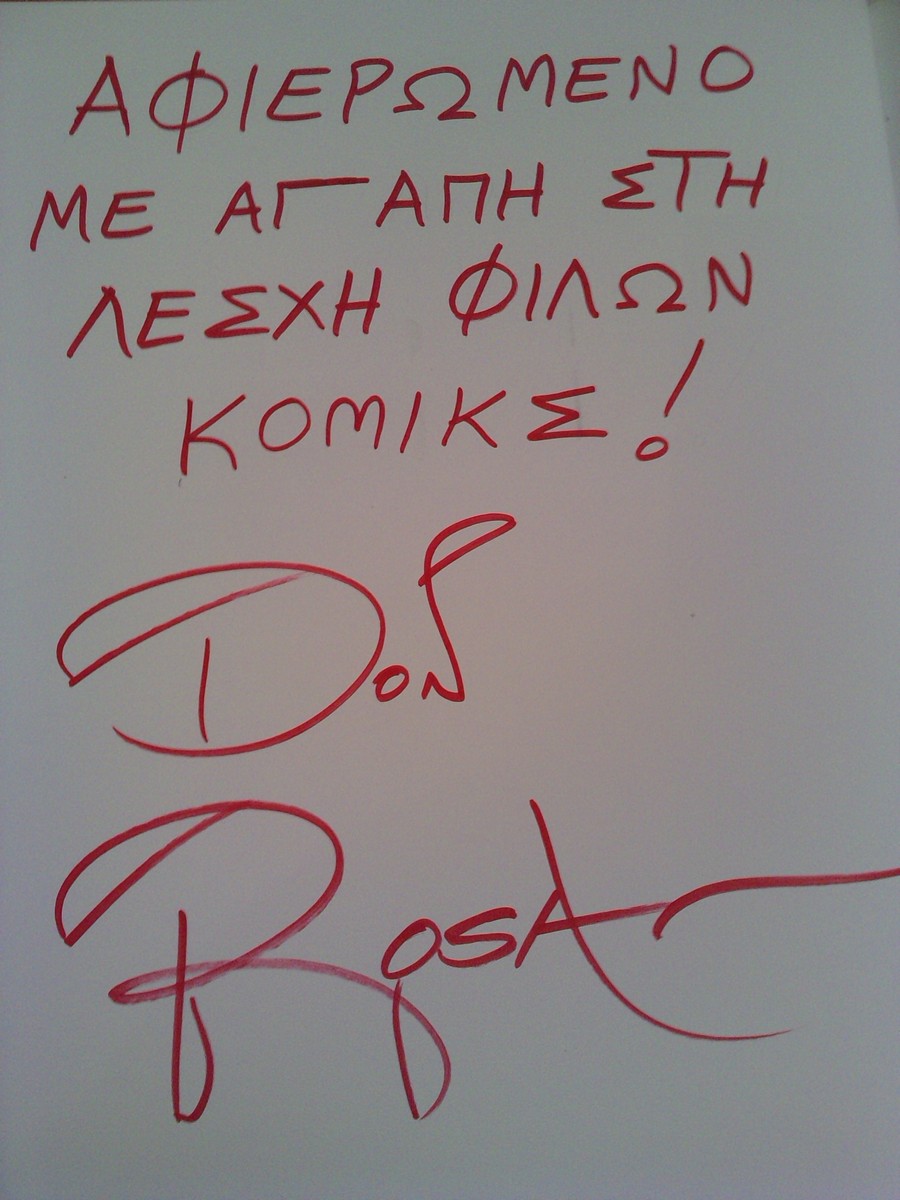 ΑΦΙΕΡΩΜΕΝΟ
ΜΕ ΑΓΑΠΗ ΣΤΗ
ΛΕΣΧΗ ΦΙΛΩΝ
ΚΟΜΙΚΣ!
DON
ROSA